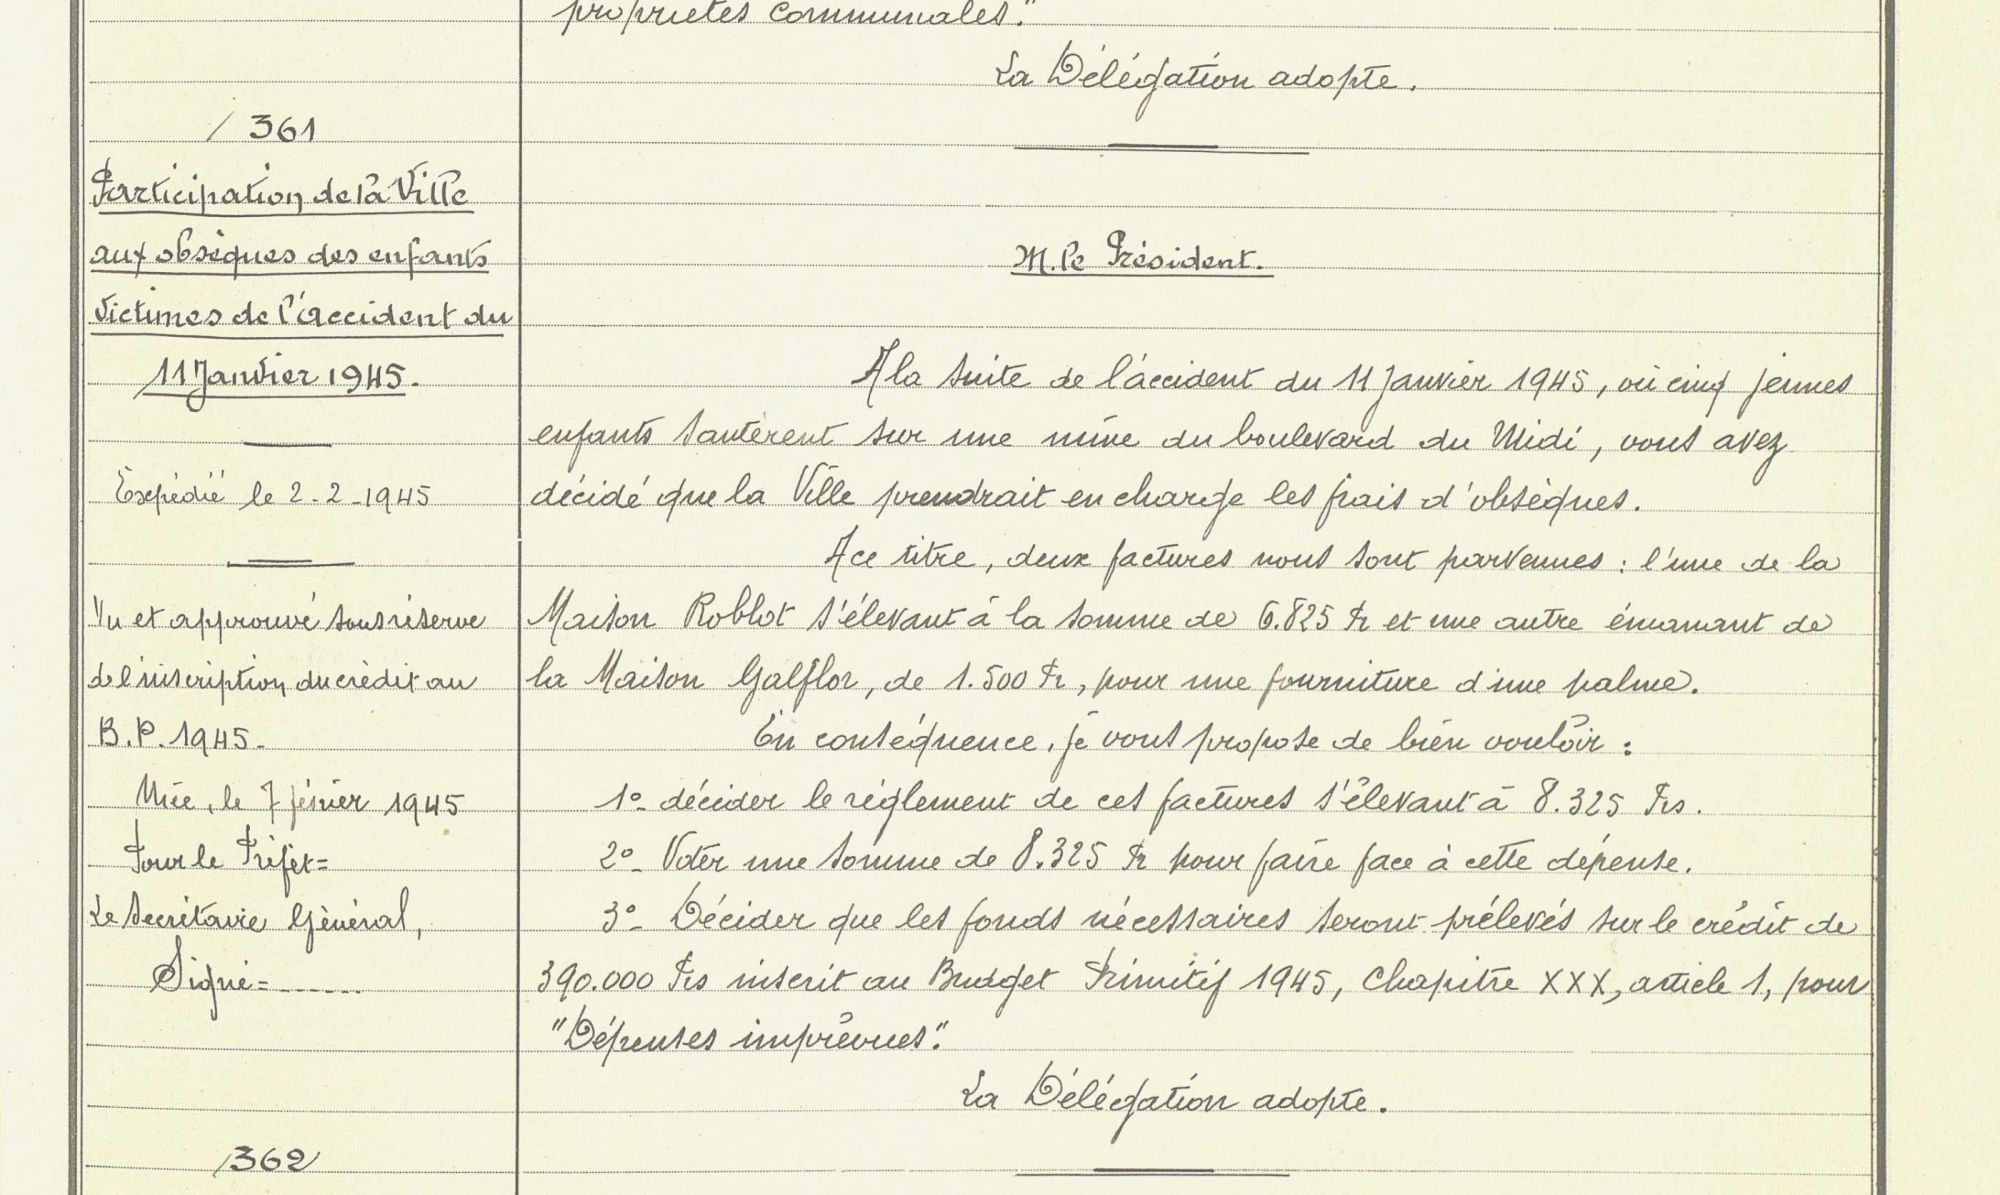 propriétés communales."
La Délégation adopte.
/ 361
Participation de la Ville
aux obsèques des enfants
victimes de l'accident du
11 Janvier 1945.
Expédié le 2-2-1945
Vu et approuvé sous réserve
de l'inscription du crédit au
B.P. 1945-
Nice, le 7 février 1945
Pour le Préfet=
Le Secrétaire Général,
Signé=-------
/362
M. le Président.
A la suite de l'accident du 11 Janvier 1945, où cinq jeunes
enfants sautèrent sur une mine du boulevard du Midi, vous avez
décidé que la Ville prendrait en charge les frais d'obsèques.
A ce titre, deux factures nous sont parvenues : l'une de la
Maison Roblot s'élevant à la somme de 6.825 Fr et une autre émanant de
la Maison Galflor, de 1.500 Fr, pour une fourniture d'une palme.
En conséquence, je vous propose de bien vouloir :
1°- décider le règlement de ces factures s'élevant à 8.325 Frs.
2°- Voter une somme de 8.325 Fr pour faire face à cette dépense.
3°- Décider que les fonds nécessaires seront prélevés sur le crédit de
390.000 Frs inscrit au Budget Primitif 1945, Chapitre XXX, article 1, pour
"Dépenses imprévues".
La Délégation adopte.